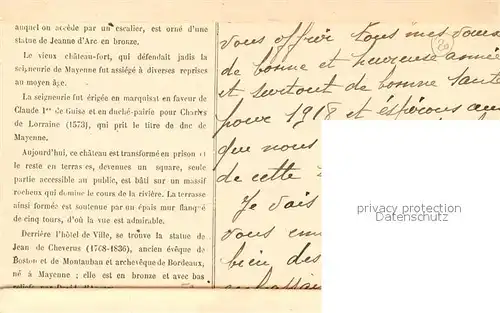 auquel on accède par un escalier, est orné d'une
statue de Jeanne d'Arc en bronze.
Le vieux château-fort, qui défendait jadis la
seigneurie de Mayenne fut assiégé à diverses reprises
au moyen âge.
La seigneurie fut érigée en marquisat en faveur de
Claude Ier de Guise et en duché-pairie pour Charles
de Lorraine (1573), qui prit le titre de duc de
Mayenne.
Aujourd'hui, ce château est transformé en prison et
le reste en terrasses, devenues un square, seule
partie accessible au public, est bâti sur un massif
rocheux qui domine le cours de la rivière. La terrasse
ainsi formée est soutenue par un épais mur flanqué
de cinq tours, d'où la vue est admirable.
Derrière l'hôtel de Ville, se trouve la statue de
Jean de Cheverus (1768-1836), ancien évêque de
Boston et de Montauban et archevêque de Bordeaux,
né à Mayenne ; elle est en bronze et avec bas
vous offrir tous mes vœux
de bonne et heureuse année
et surtout de bonne santé
pour 1918 et espérons
que nous
de cette
Je vais
vous
bien des
20
privacy protection
Datenschutz